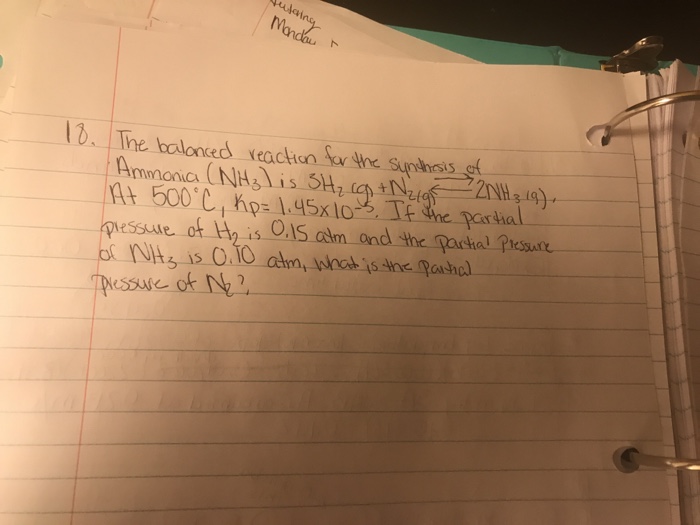 tutoring
Monday
18. The balanced reaction for the synthesis of
Ammonia (NH₃) is 3H₂ (g) + N₂ (g) ⇌ 2NH₃ (g).
At 500°C, Kp = 1.45x10⁻⁵. If the partial
pressure of H₂ is 0.15 atm and the partial Pressure
of NH₃ is 0.10 atm, What is the partial
pressure of N₂?